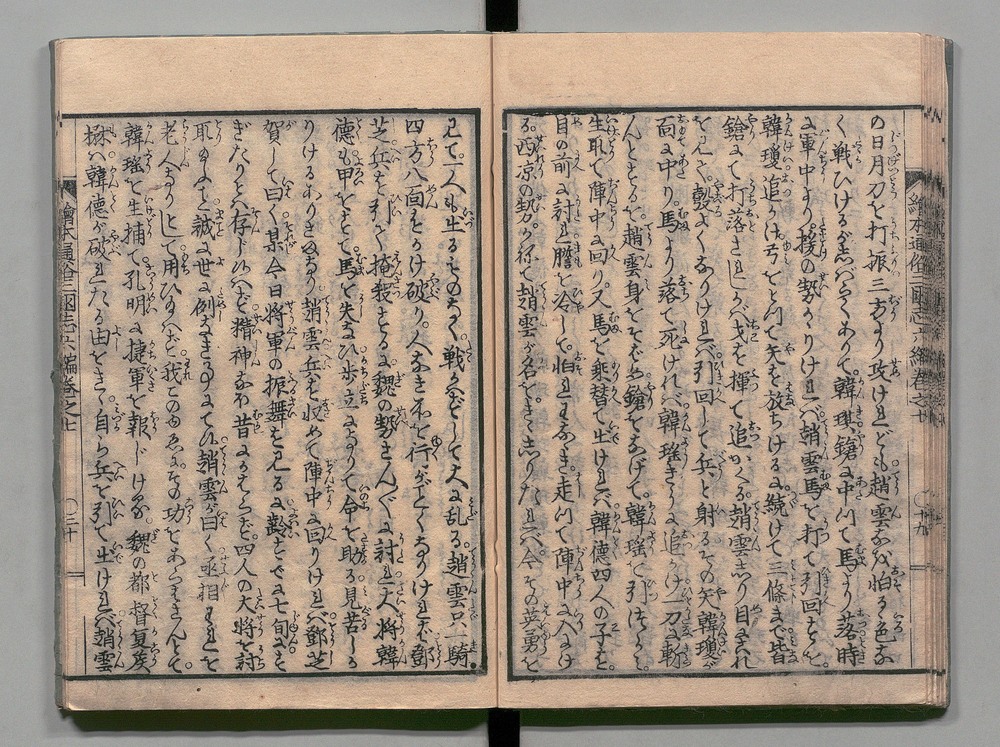 の日月刀を打振三方より攻けれども趙雲なほ怕る色な
く戦ひけるが志バらくありて韓琪鎗に中つて馬より落時
に軍中より援の勢かゝりけれバ趙雲馬を打て引回すを
韓瓊追かけ弓をとつて矢を放ちける続けて三條まで皆
鎗にて打落されしかバ戈を揮て追かくる趙雲志り目にこれ
を見て彀よくなりけれバ引回して兵と射るその矢韓瓊が
面に中り馬より落て死けれバ韓瑤きたり追かけ一刀に斬
んとするを趙雲身をそむけ鎗をあげて韓瑤を引つかミ
生取て陣中に回り又馬を乗替て出けれバ韓德四人の子を
目の前に討れ膽を冷して怕れおのゝき走つて陣中に入け
る西凉の勢かねて趙雲が名をきゝ志りたれバ今その英勇を
見て一人も出るものなく戦ハずして大に乱る趙雲只一騎
四方八面をかけ破り人なき所を行がごとくなりけれバ鄧
芝兵を引て掩殺するに魏の勢さんざんに討れ大将韓
德も甲をすて馬を失なひ歩立になりて命を助る見苦し
りけるありさまなり趙雲兵を収めて陣中に回りけれバ鄧芝
賀して曰く某今日将軍の振舞を見るに齢すでに七旬にも
ぎたりとハ存じ候へども精神なほ昔にかハらず四人の大将を討
取ること誠に世に例なきことにて候趙雲が曰く丞相われを
老人なりとて用ひ玉ハず我このゆゑにその功をあらハさんとて
韓瑤を生捕て孔明に捷軍を報じける魏の都督夏矦
楙ハ韓德が破れたる由をきゝ自ら兵を引て出けれバ趙雲
繪本通俗三國志六編卷之七
三十
繪本通俗三國志六編卷之七
廿九